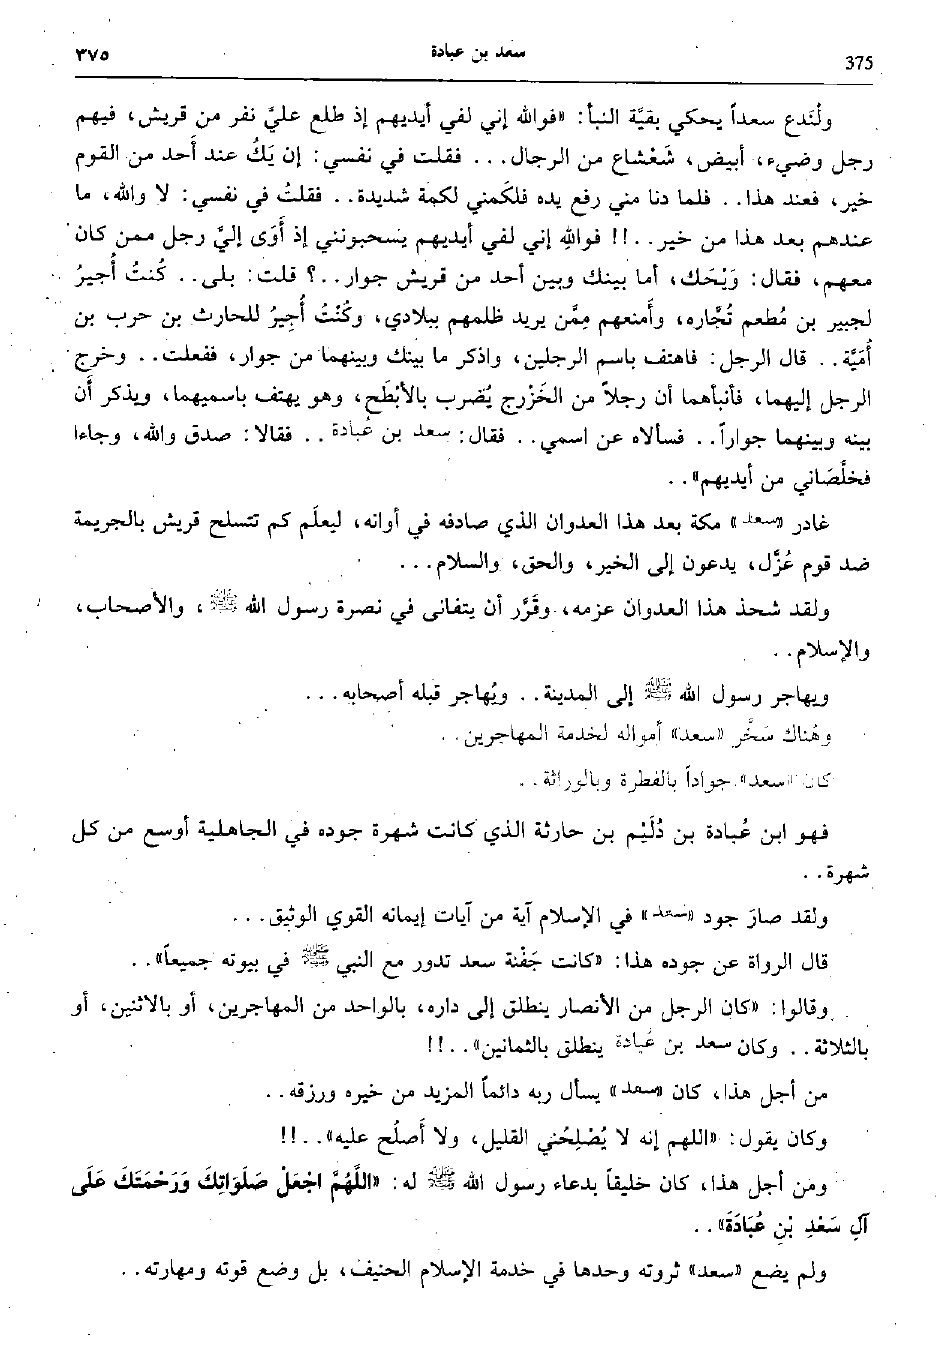 375 سعد بن عبادة ٣٧٥
ولْنَدع سعداً يحكي بقيَّة النبأ: «فوالله إني لفي أيديهم إذ طلع عليَّ نفر من قريش، فيهم
رجل وضيء، أبيض، شَعْشاع من الرجال... فقلت في نفسي: إن يَكُ عند أحد من القوم
خير، فعند هذا.. فلما دنا مني رفع يده فلكَمني لكمة شديدة.. فقلتُ في نفسي: لا والله، ما
عندهم بعد هذا من خير..!! فوالله إني لفي أيديهم يسحبونني إذ أَوَى إليَّ رجل ممن كان
معهم، فقال: وَيْحَك، أما بينك وبين أحد من قريش جوار..؟ قلت: بلى.. كُنتُ أُجيرُ
لجبير بن مُطعم تُجَّاره، وأَمنعهم مِمَّن يريد ظلمهم ببلادي، وكُنْتُ أُجِيرُ للحارث بن حرب بن
أُمَيَّة.. قال الرجل: فاهتف باسم الرجلين، واذكر ما بينك وبينهما من جوار، ففعلت.. وخرج
الرجل إليهما، فأنبأهما أن رجلاً من الخَزْرج يُضرب بالأبْطَح، وهو يهتف باسميهما، ويذكر أن
بينه وبينهما جواراً.. فسألاه عن اسمي.. فقال: سعد بن عُبادة.. فقالا: صدق والله، وجاءا
فخلَّصَاني من أيديهم»..
غادر «سعد» مكة بعد هذا العدوان الذي صادفه في أوانه، ليعلَم كم تتسلح قريش بالجريمة
ضد قوم عُزَّل، يدعون إلى الخير، والحق، والسلام...
ولقد شحذ هذا العدوان عزمه، وقَرَّر أن يتفانى في نصرة رسول الله ﷺ، والأصحاب،
والإسلام..
ويهاجر رسول الله ﷺ إلى المدينة.. ويُهاجر قبله أصحابه...
وهُناك سَخَّر «سعد» أمواله لخدمة المهاجرين..
كان «سعد» جواداً بالفطرة وبالوراثة..
فهو ابن عُبادة بن دُلَيْم بن حارثة الذي كانت شهرة جوده في الجاهلية أوسع من كل
شهرة..
ولقد صارَ جود «سعد» في الإسلام آية من آيات إيمانه القوي الوثيق...
قال الرواة عن جوده هذا: «كانت جَفْنة سعد تدور مع النبي ﷺ في بيوته جميعاً»..
وقالوا: «كان الرجل من الأنصار ينطلق إلى داره، بالواحد من المهاجرين، أو بالاثنين، أو
بالثلاثة.. وكان سعد بن عُبادة ينطلق بالثمانين»..!!
من أجل هذا، كان «سعد» يسأل ربه دائماً المزيد من خيره ورزقه..
وكان يقول: «اللهم إنه لا يُصْلِحُني القليل، ولا أَصلُح عليه»..!!
ومن أجل هذا، كان خليقاً بدعاء رسول الله ﷺ له: «اللَّهُمَّ اجْعَلْ صَلَوَاتِكَ وَرَحْمَتَكَ عَلَى
آلِ سَعْدِ بْنِ عُبَادَةَ»..
ولم يضع «سعد» ثروته وحدها في خدمة الإسلام الحنيف، بل وضع قوته ومهارته..